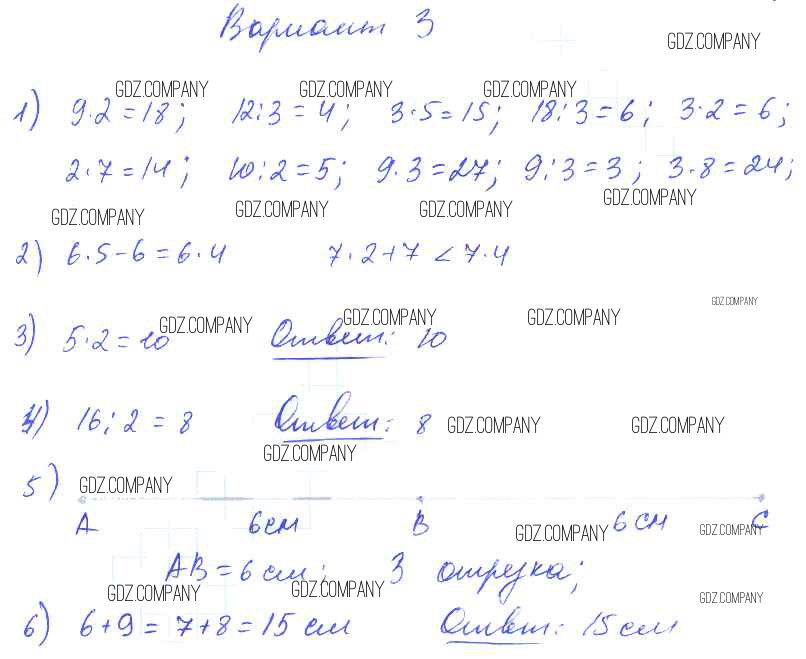 Вариант 3
GDZ.COMPANY
GDZ.COMPANY GDZ.COMPANY GDZ.COMPANY
1) 9·2=18; 12:3=4; 3·5=15; 18:3=6; 3·2=6;
2·7=14; 10:2=5; 9·3=27; 9:3=3; 3·8=24;
GDZ.COMPANY GDZ.COMPANY GDZ.COMPANY GDZ.COMPANY
2) 6·5-6=6·4 7·2+7<7·4
GDZ.COMPANY
3) 5·2=10 GDZ.COMPANY Ответ: 10 GDZ.COMPANY GDZ.COMPANY
4) 16:2=8 Ответ: 8 GDZ.COMPANY GDZ.COMPANY
GDZ.COMPANY
5) GDZ.COMPANY
A 6 см B 6 см C
GDZ.COMPANY GDZ.COMPANY
AB=6 см; 3 отрезка;
GDZ.COMPANY GDZ.COMPANY GDZ.COMPANY
6) 6+9=7+8=15 см Ответ: 15 см